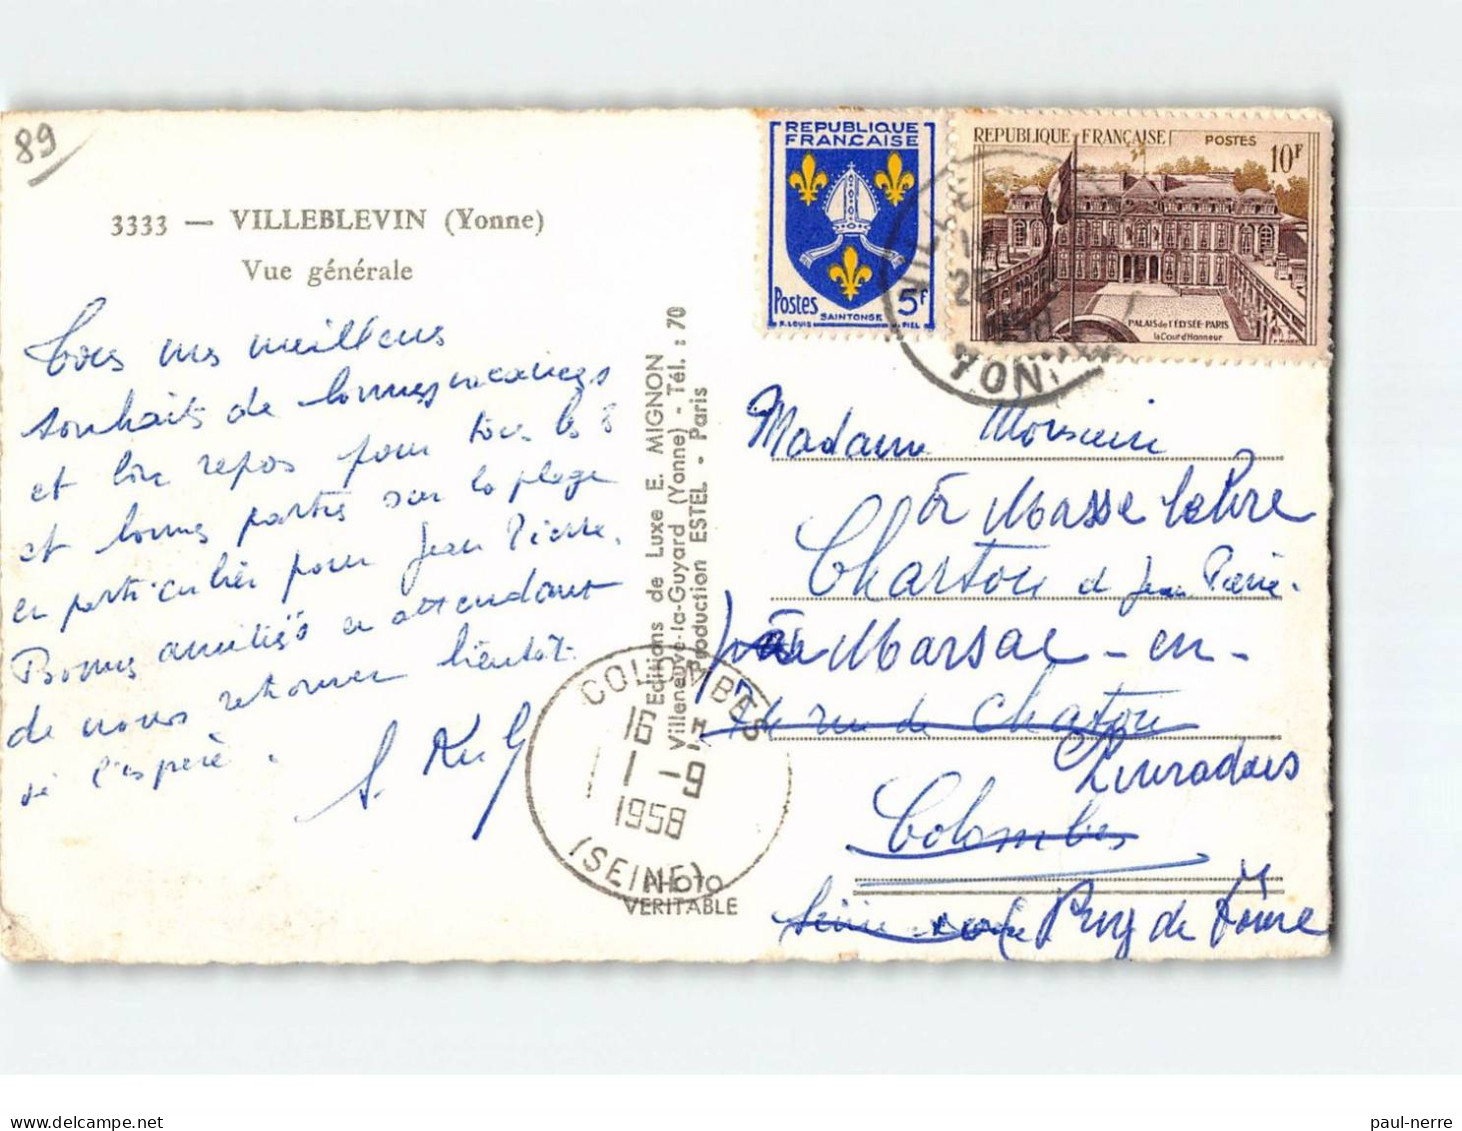 89
3333 — VILLEBLEVIN (Yonne)
Vue générale
Tous mes meilleurs
souhaits de bonnes vacances
et bon repos pour tous les 3
et bonnes parties sur la plage
en particulier pour Jean Pierre.
Bonnes amitiés en attendant
de nous retrouver bientôt
j'espère.
Editions de Luxe E. MIGNON
Villeneuve-la-Guyard (Yonne) - Tél. : 70
Production ESTEL - Paris
PHOTO
VERITABLE
COLOMBES
16 H
1 - 9
1958
(SEINE)
REPUBLIQUE
FRANÇAISE
Postes 5F
SAINTONGE
R. LOUIS
FIL
REPUBLIQUE FRANÇAISE POSTES 10F
PALAIS de l'ÉLYSÉE-PARIS
la Cour d'Honneur
YONNE
Madame Monsieur
à Masse Lebre
Charton et Jean Pierre.
à Marsac-en-
rue de Chatou
Livradois
Colombes
Seine Puy de Dôme
paul-nerre